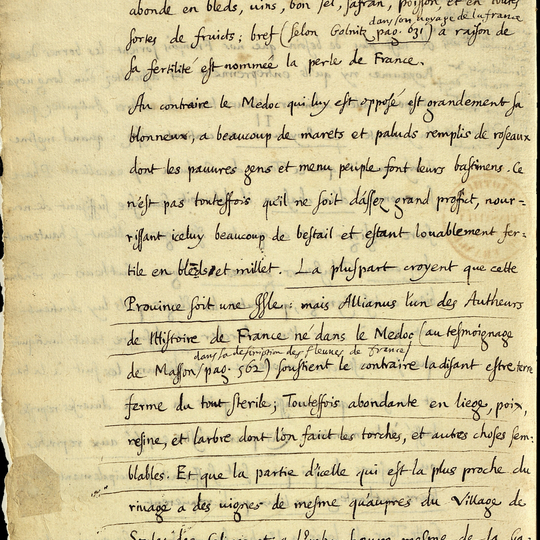 abonde en bleds, vins, bon sel, safran, poisson, et en toutes
dans son voyage de la france
sortes de fruicts; bref (selon Golnitz pag. 631) a raison de
sa fertilité est nommée la perle de France.
Au contraire le Medoc qui luy est opposé est grandement sa
blonneux, a beaucoup de marets et paluds remplis de roseaux
dont les pauures gens et menu peuple font leurs bastimens. Ce
n'est pas toutesfois qu'il ne soit d'assez grand proffit, nour-
rissant iceluy beaucoup de bestail et estant louablement fer-
tile en bleds et millet. La pluspart croyent que cette
Prouince soit une Isle: mais Allianus l'un des Autheurs
de l'Histoire de France né dans le Medoc (au tesmoignage
dans la description des fleuues de France
de Masson pag. 562) soustient le contraire la disant estre terre
ferme du tout sterile; Toutesfois abondante en liege, poix,
resine, et l'arbre dont l'on faict les torches, et autres choses sem-
blables. Et que la partie d'icelle qui est la plus proche du
riuage a des vignes de mesme qu'aupres du Village de